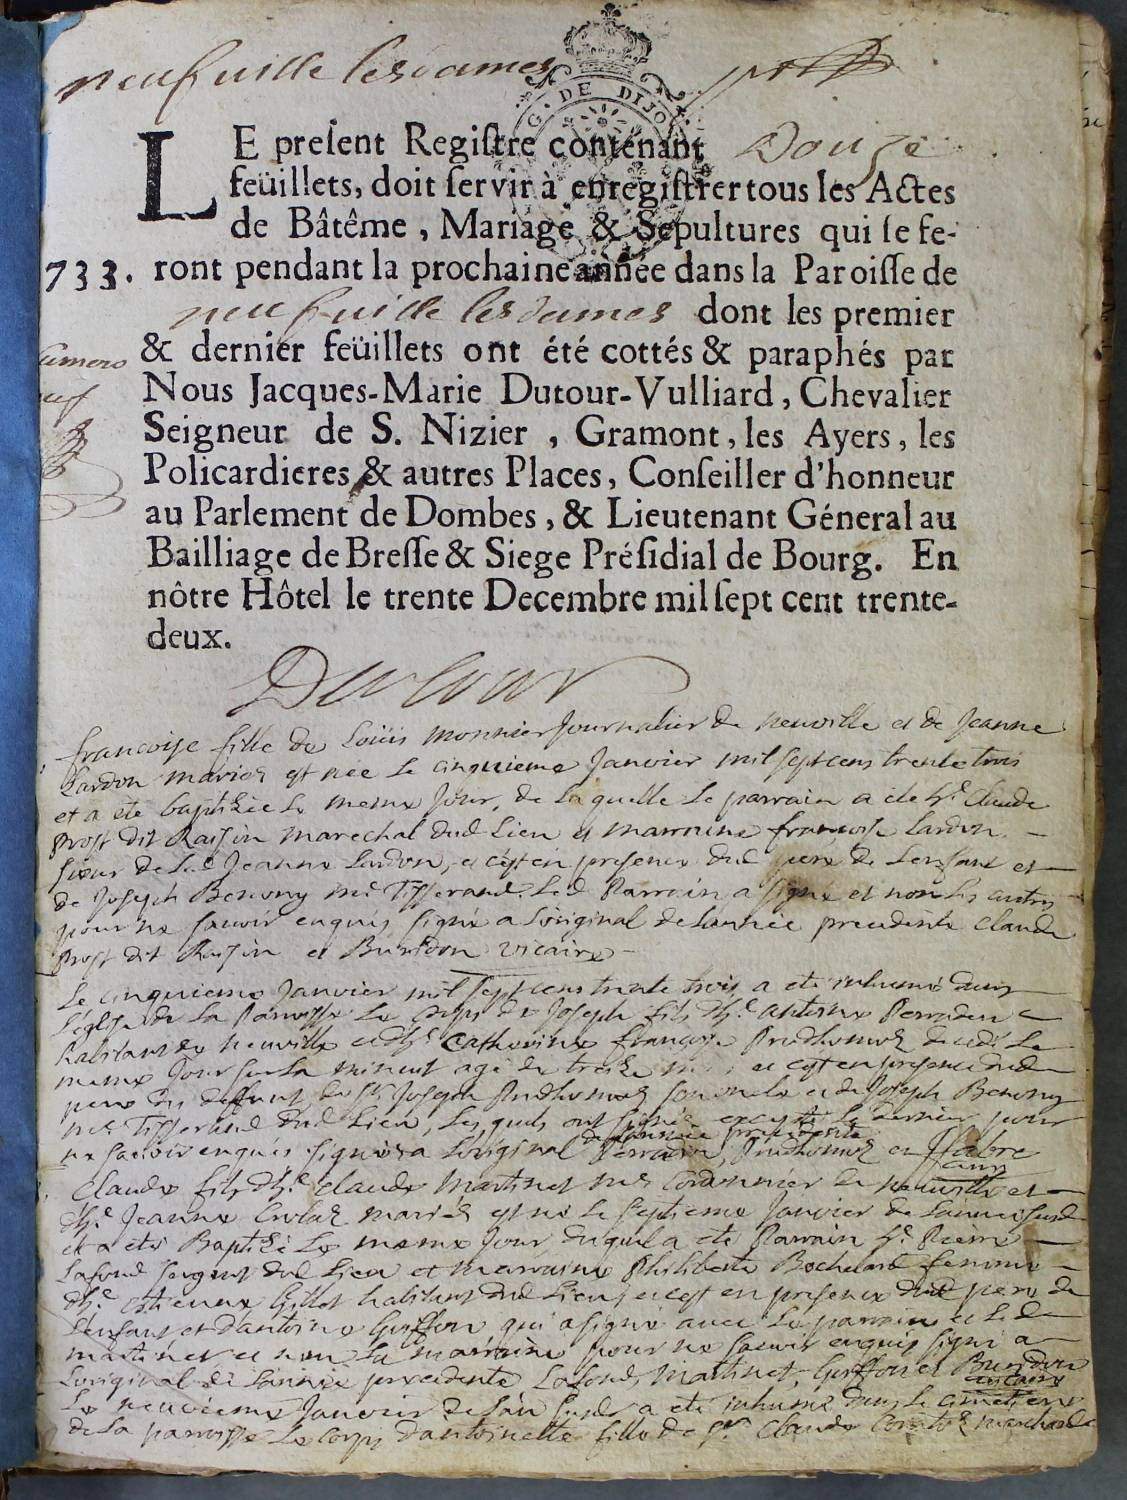 neufuille les dames
G. DE DIJO
LE preſent Regiſtre contenant Douze
feüillets, doit ſervir à enregiſtrer tous les Actes
de Bâtême, Mariage & Sepultures qui ſe fe-
733. ront pendant la prochaine année dans la Paroiſſe de
neufuille les dames dont les premier
& dernier feüillets ont été cottés & paraphés par
Nous Jacques-Marie Dutour-Vulliard, Chevalier
Seigneur de S. Nizier, Gramont, les Ayers, les
Policardieres & autres Places, Conſeiller d'honneur
au Parlement de Dombes, & Lieutenant Géneral au
Bailliage de Breſſe & Siege Préſidial de Bourg. En
nôtre Hôtel le trente Decembre mil ſept cent trente-
deux.
Dutour
francoise fille de Loüis monnier Journalier de neuville et de Jeanne
Lardon mariez est née le cinquieme Janvier mil sept cens trente trois
et a ete baptizée le meme Jour, de laquelle le parrain a ete hr. Claude
Prost dit Raisin marechal dud lieu et marraine francoise Lardon
sœur de lad Jeanne Lardon, et c'est en presence dud pere de l'enfant et
de Joseph Benony me Tisserand. Led Parrain a signé et non les autres
pour ne savoir enquis signé a l'original de l'année precedente Claude
Prost dit Raisin et Buridon vicaire
Le cinquieme Janvier mil sept cens trente trois a ete inhumé dans
l'église de la Parroisse le corps de Joseph fils d'h. antoine
habitant de neuville et d'h. Catherine françoise Prudhomme decedé le
meme Jour sur la minuit agé de treize et c'est en presence dud
pere du deffunt, de Sr Joseph Prudhomme son et de Joseph Benony
me Tisserand dud Lieu, lesquels ont signé excepté le dernier pour
ne savoir enquis signé a l'original de l'année precedente Prudhomme et fabre
Claude fils d'h. Claude Martinet me Cordonnier de neuville et
d'h. Jeanne mariez est né le septieme Janvier de l'année susd
et a ete Baptizé le meme Jour duquel a ete Parrain Sr. Pierre
Lafond sergent dud lieu et marraine Philiberte Bochard femme
d'h. Estienne Gillot habitant dud Lieu, et c'est en presence dud pere de
l'enfant et d'antoine Guiffon qui a signé avec le parrain et led
martinet et non la marraine pour ne savoir enquis signé a
l'original de l'année precedente Lafond, Martinet, Guiffon et Buridon
vicaire
Le neuvieme Janvier de l'an susd a ete inhumé dans le cimetiere
de la parroisse le corps d'antoinette fille de Sr. Claude marchand